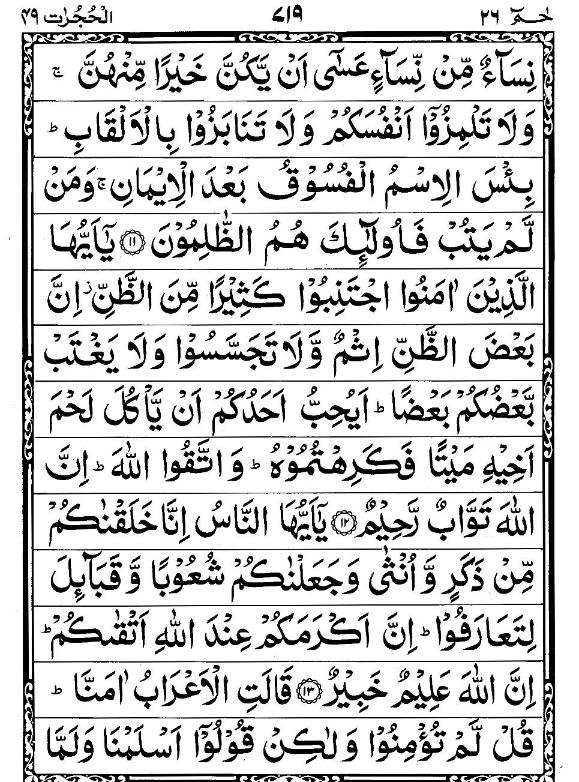 حٰمٓ ٢٦ ٧١٩ الْحُجُرٰت ٤٩
نِسَآءٌ مِّنْ نِّسَآءٍ عَسٰٓى اَنْ يَّكُنَّ خَيْرًا مِّنْهُنَّ ۚ
وَلَا تَلْمِزُوْٓا اَنْفُسَكُمْ وَلَا تَنَابَزُوْا بِالْاَلْقَابِ ؕ
بِئْسَ الِاسْمُ الْفُسُوْقُ بَعْدَ الْاِيْمَانِ ۚ وَمَنْ
لَّمْ يَتُبْ فَاُولٰٓئِكَ هُمُ الظّٰلِمُوْنَ ﴿١١﴾ يٰٓاَيُّهَا
الَّذِيْنَ اٰمَنُوا اجْتَنِبُوْا كَثِيْرًا مِّنَ الظَّنِّ ز اِنَّ
بَعْضَ الظَّنِّ اِثْمٌ وَّلَا تَجَسَّسُوْا وَلَا يَغْتَبْ
بَّعْضُكُمْ بَعْضًا ؕ اَيُحِبُّ اَحَدُكُمْ اَنْ يَّاْكُلَ لَحْمَ
اَخِيْهِ مَيْتًا فَكَرِهْتُمُوْهُ ؕ وَاتَّقُوا اللّٰهَ ؕ اِنَّ
اللّٰهَ تَوَّابٌ رَّحِيْمٌ ﴿١٢﴾ يٰٓاَيُّهَا النَّاسُ اِنَّا خَلَقْنٰكُمْ
مِّنْ ذَكَرٍ وَّاُنْثٰى وَجَعَلْنٰكُمْ شُعُوْبًا وَّقَبَآئِلَ
لِتَعَارَفُوْا ؕ اِنَّ اَكْرَمَكُمْ عِنْدَ اللّٰهِ اَتْقٰىكُمْ ؕ
اِنَّ اللّٰهَ عَلِيْمٌ خَبِيْرٌ ﴿١٣﴾ قَالَتِ الْاَعْرَابُ اٰمَنَّا ؕ
قُلْ لَّمْ تُؤْمِنُوْا وَلٰكِنْ قُوْلُوْٓا اَسْلَمْنَا وَلَمَّا